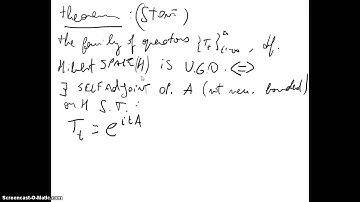 theorem : (STONE)
the family of operators {T_t} of.
Hilbert SPACE (H) IS U.G.O. <=>
∃ SELF Adjoint op. A (not nec. bounded)
on H S.T. :
T_t = e^{itA}
Screencast-O-Matic.com